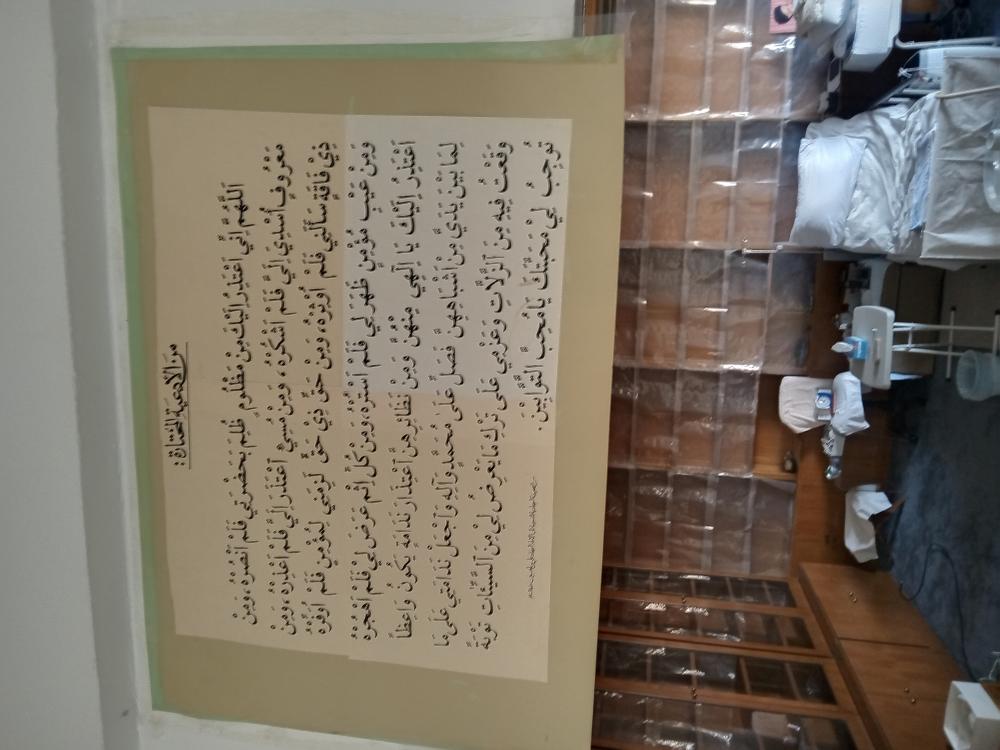 من الأدعية المختارة :
اَللّٰهُمَّ اِنِّي اَعْتَذِرُ اِلَيْكَ مِنْ مَظْلُومٍ ظُلِمَ بِحَضْرَتِي فَلَمْ اَنْصُرْهُ، وَمِنْ
مَعْرُوفٍ اُسْدِيَ اِلَيَّ فَلَمْ اَشْكُرْهُ، وَمِنْ مُسِيءٍ اعْتَذَرَ اِلَيَّ فَلَمْ اَعْذِرْهُ، وَمِنْ
ذِي فَاقَةٍ سَأَلَنِي فَلَمْ اُوثِرْهُ، وَمِنْ حَقِّ ذِي حَقٍّ لَزِمَنِي لِمُؤْمِنٍ فَلَمْ اُوَفِّرْهُ
وَمِنْ عَيْبِ مُؤْمِنٍ ظَهَرَ لِي فَلَمْ اَسْتُرْهُ، وَمِنْ كُلِّ اِثْمٍ عَرَضَ لِي فَلَمْ اَهْجُرْهُ
اَعْتَذِرُ اِلَيْكَ يَا اِلٰهِي مِنْهُنَّ وَمِنْ نَظَائِرِهِنَّ اعْتِذَارَ نَدَامَةٍ يَكُونُ وَاعِظاً
لِمَا بَيْنَ يَدَيَّ مِنْ اَشْبَاهِهِنَّ فَصَلِّ عَلَىٰ مُحَمَّدٍ وَآلِهِ وَاجْعَلْ نَدَامَتِي عَلَىٰ مَا
وَقَعْتُ فِيهِ مِنَ الزَّلَّاتِ وَعَزْمِي عَلَىٰ تَرْكِ مَا يَعْرِضُ لِي مِنَ السَّيِّئَاتِ تَوْبَةً
تُوجِبُ لِي مَحَبَّتَكَ يَا مُحِبَّ التَّوَّابِينَ .